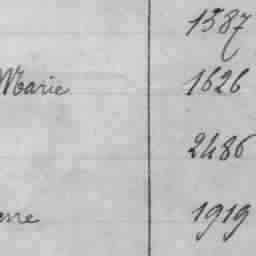 1587
Marie 1626
2486
1919